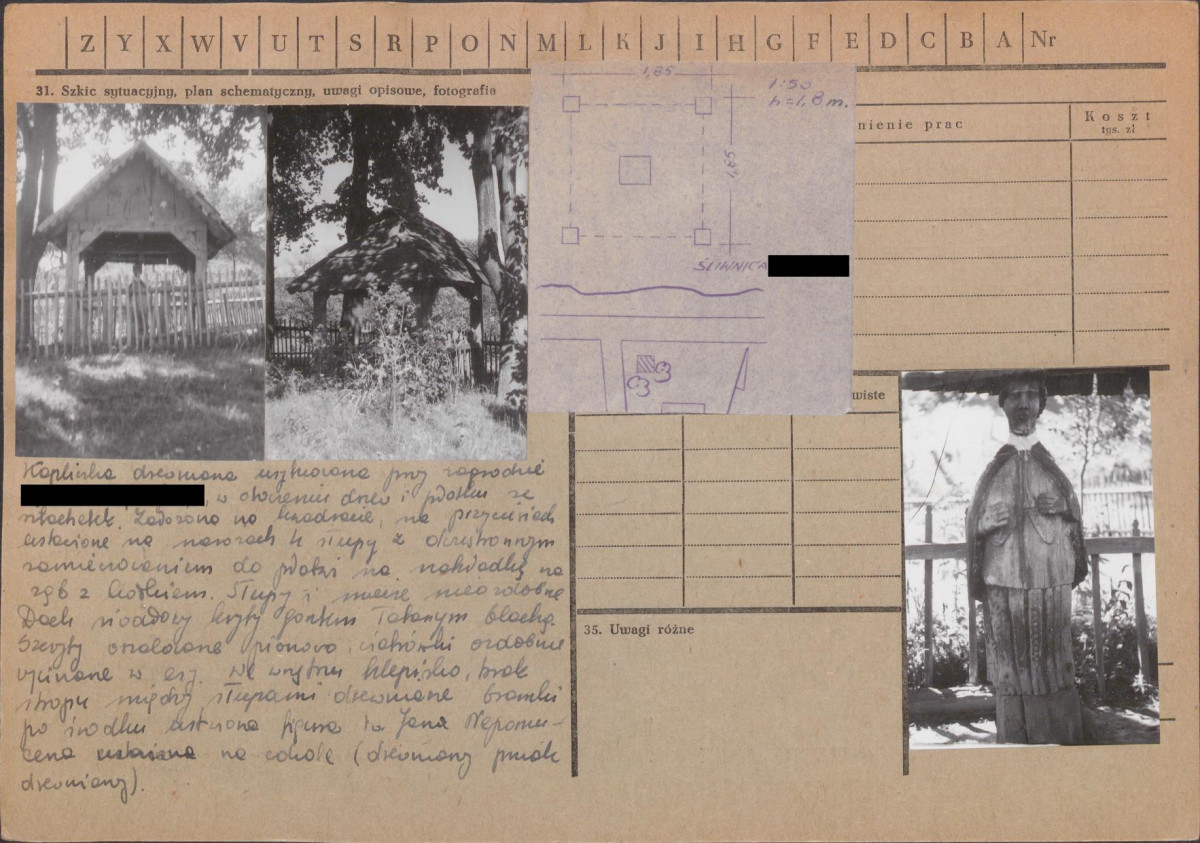 Z Y X W V U T S R P O N M L K J I H G F E D C B A Nr
31. Szkic sytuacyjny, plan schematyczny, uwagi opisowe, fotografia
1,85
1:50
h=1,8 m.
1,85
ŚLIWNICA
nienie prac
Koszt
tys. zł
wiste
Kapliczka drewniana usytuowana przy zagrodzie
w otoczeniu drzew i płotku ze
sztachetek. Założona na kwadracie, na przyciesiach
ustawione na narożach 4 słupy z
do płatwi na nakładkę na
ząb z kołkiem. Słupy i miecze nieozdobne
Dach siodłowy kryty gontem łatanym blachą.
Szczyty oszalowane pionowo, wiatrówki ozdobnie
wycinane w esy. We wnętrzu klepisko, brak
stropu między słupami drewniane bramki
po środku ustawiona figura św Jana Nepomu-
cena na cokole (drewniany pniak
drewniany).
35. Uwagi różne